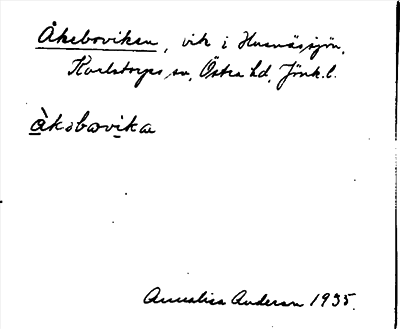 Åkeboviken, vik i Husnässjön,
Karlstorps sn, Östra hd, Jönk. l.
å̀kəbωvika
Annalisa Anderson 1935.